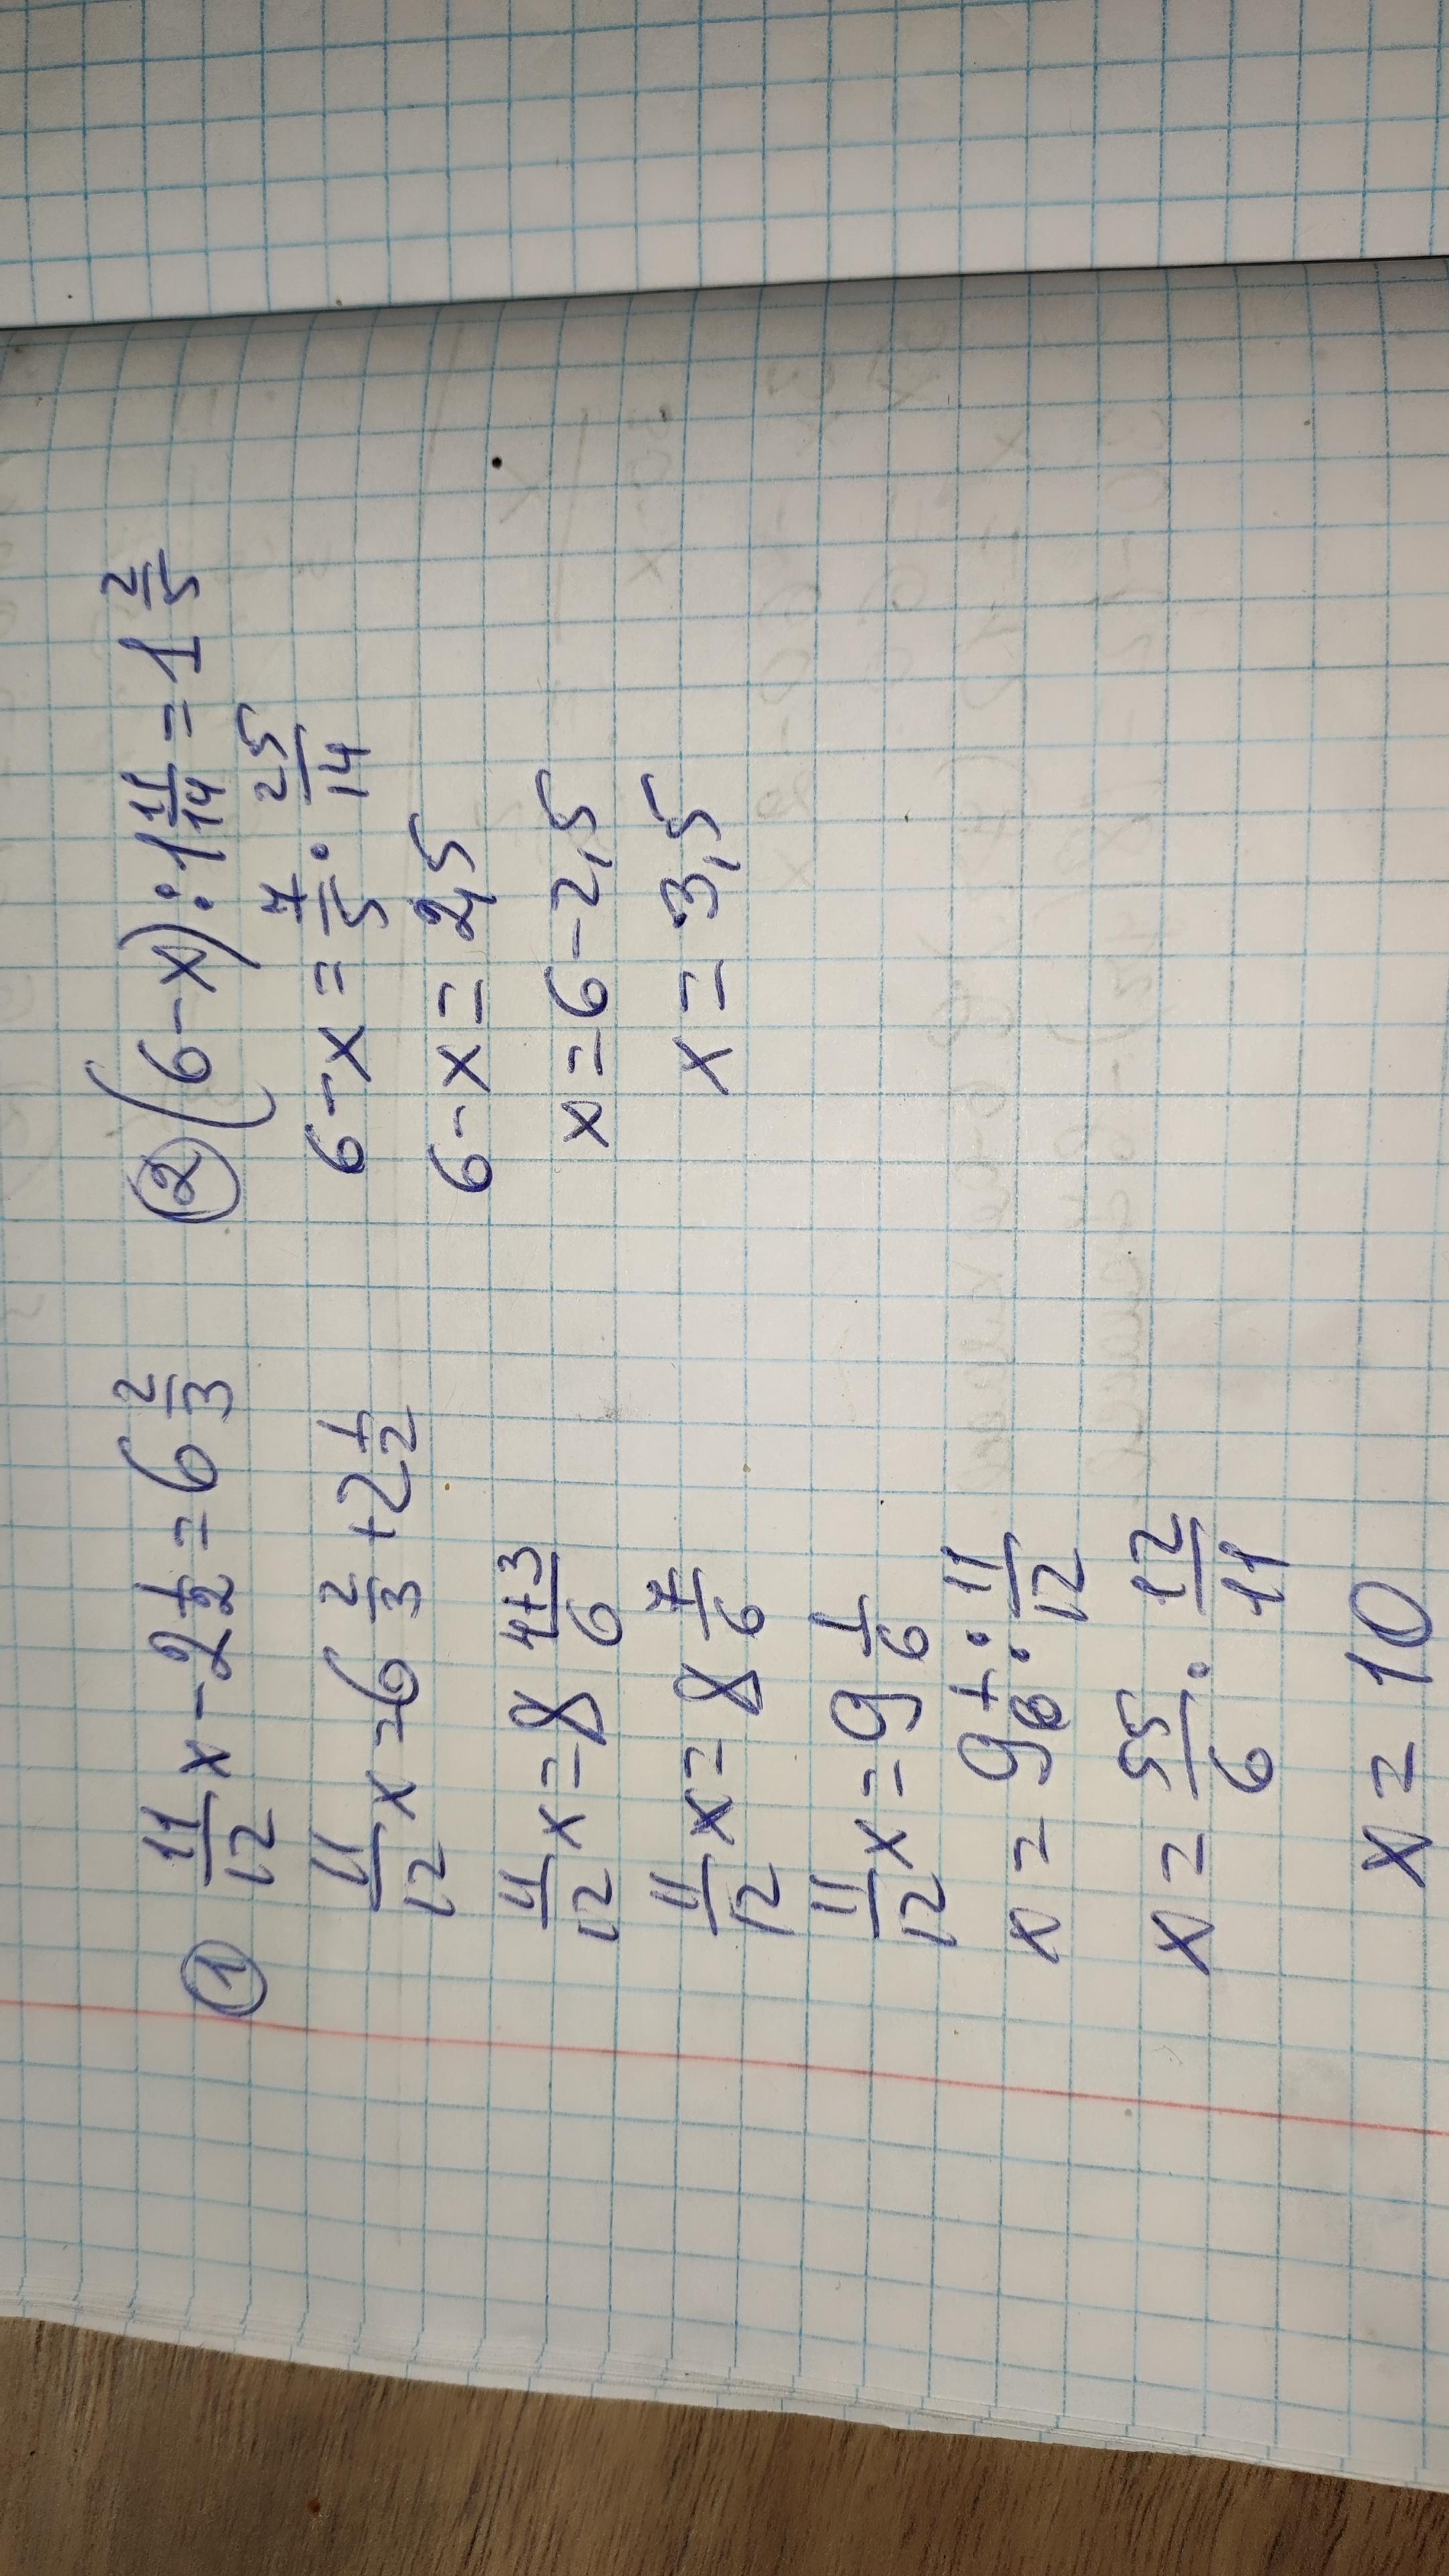 ① 11/12 x - 2 1/2 = 6 2/3
11/12 x = 6 2/3 + 2 1/2
11/12 x = 8 4+3/6
11/12 x = 8 7/6
11/12 x = 9 1/6
x = 9 1/6 : 11/12
x = 55/6 · 12/11
x = 10
② (6 - x) : 1 11/14 = 1 2/5
6 - x = 7/5 · 25/14
6 - x = 2,5
x = 6 - 2,5
x = 3,5